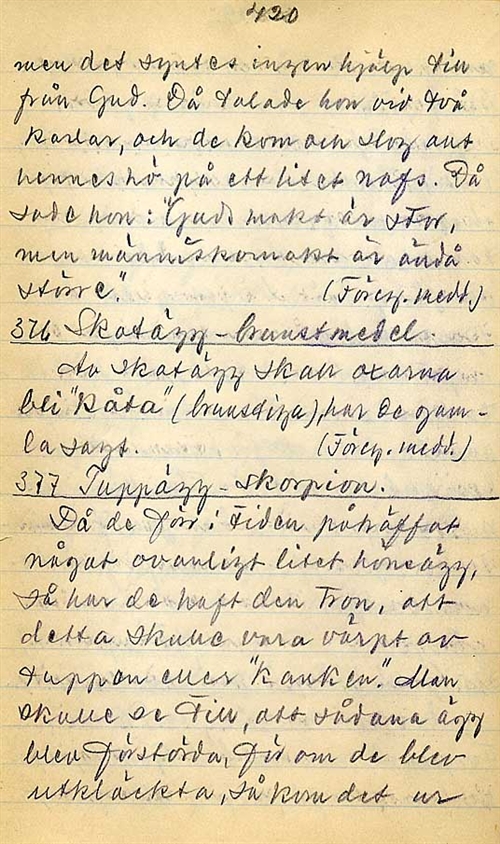 420
men det syntes ingen hjälp till
från Gud. Då talade hon vid två
karlar, och de kom och slog aut
hennes hö på ett litet nafs. Då
sade hon: "Guds makt är stor,
men människomakt är ändå
större". (Föreg. medd.)
376 Skatägg - brunstmedel.
Av skatägg skall oxarna
bli "kåta" (brunstiga), har de gam-
la sagt. (Föreg. medd.)
377 Tuppägg - skorpion.
Då de förr i tiden påträffat
något ovanligt litet hönsägg,
så har de haft den tron, att
detta skulle vara värpt av
tuppen eller "kanken". Man
skulle se till, att sådana ägg
blev förstörda, för om de blev
utkläckta, så kom det ur